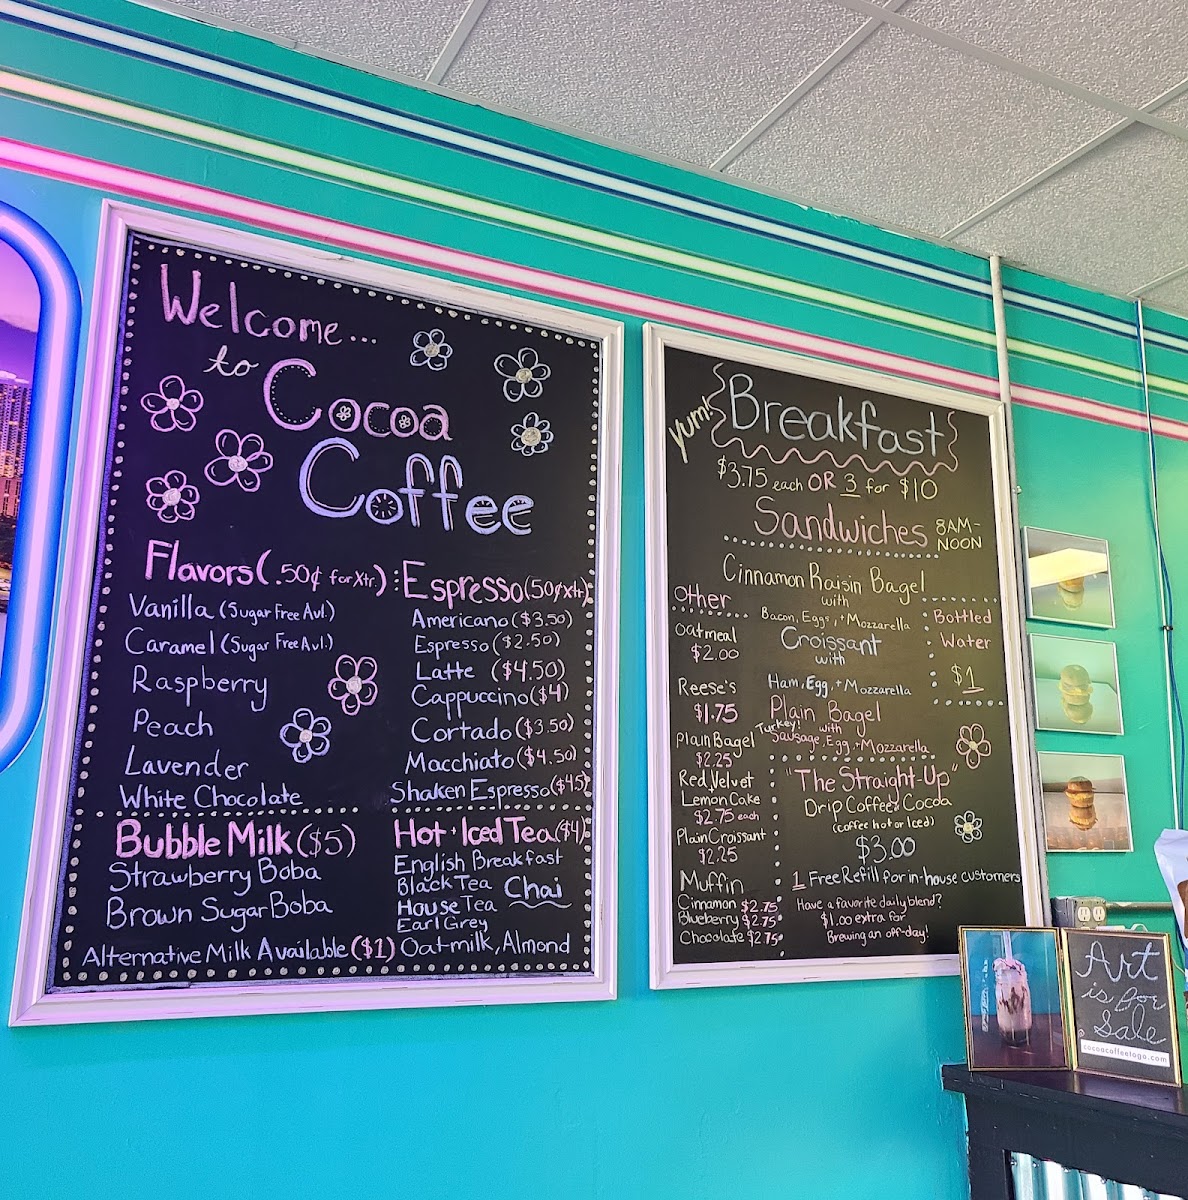 Welcome...
to Cocoa
Coffee
Flavors (.50¢ for Xtr.)
Vanilla (Sugar Free Avl.)
Caramel (Sugar Free Avl.)
Raspberry
Peach
Lavender
White Chocolate
Espresso (50¢ xtr)
Americano ($3.50)
Espresso ($2.50)
Latte ($4.50)
Cappuccino ($4)
Cortado ($3.50)
Macchiato ($4.50)
Shaken Espresso ($4.5)
Bubble Milk ($5)
Strawberry Boba
Brown Sugar Boba
Hot + Iced Tea ($4)
English Breakfast
Black Tea
House Tea
Earl Grey
Chai
Alternative Milk Available ($1) Oatmilk, Almond
yum!
Breakfast
$3.75 each OR 3 for $10
Sandwiches
8AM-
NOON
Cinnamon Raisin Bagel
with
Bacon, Eggs, + Mozzarella
Croissant
with
Ham, Egg, + Mozzarella
Plain Bagel
Turkey! with
Sausage, Egg + Mozzarella
Other
oatmeal
$2.00
Reese's
$1.75
Plain Bagel
$2.25
Red Velvet
Lemon Cake
$2.75 each
Plain Croissant
$2.25
Muffin
Cinnamon $2.75
Blueberry $2.75
Chocolate $2.75
Bottled
Water
$1
"The Straight-Up"
Drip Coffee? Cocoa
(coffee hot or Iced)
$3.00
1 Free Refill for in-house customers
Have a favorite daily blend?
$1.00 extra for
Brewing an off-day!
Art
is for
Sale
cocoacoffeetogo.com